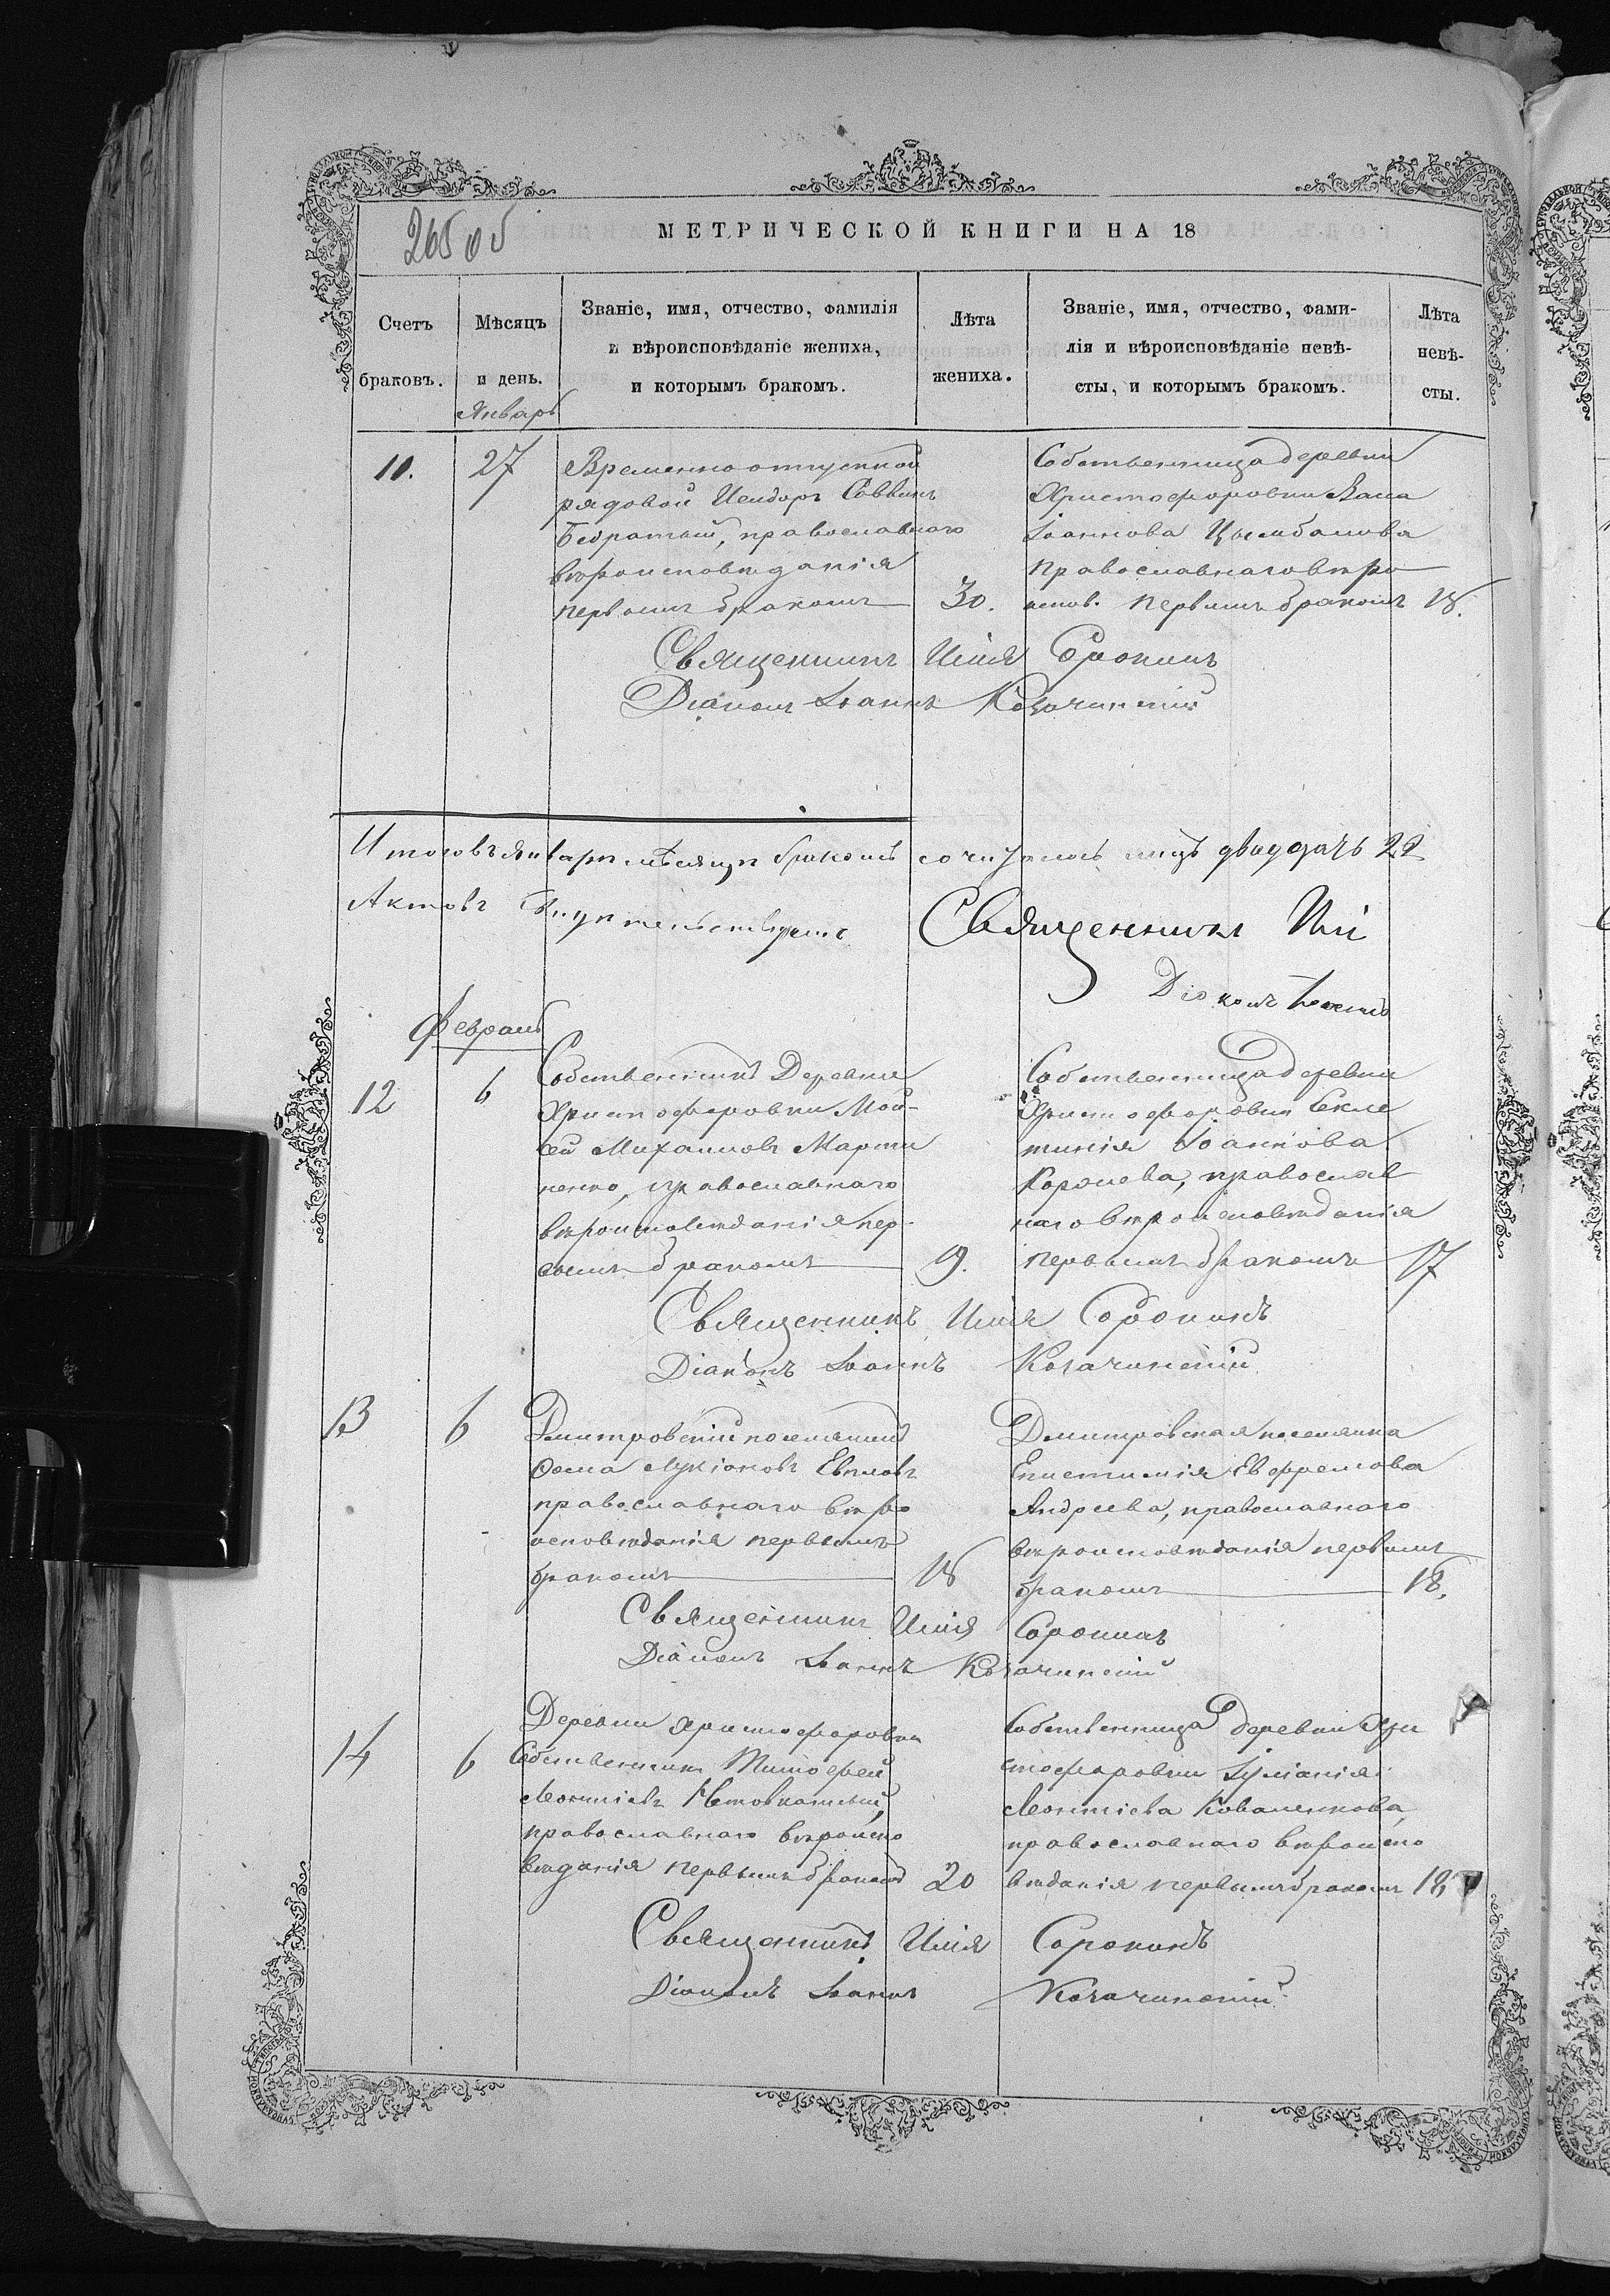 265 об
МЕТРИЧЕСКОЙ КНИГИ НА 18
Счетъ браковъ.
Мѣсяцъ и день.
Званіе, имя, отчество, фамилія
и вѣроисповѣданіе жениха,
и которымъ бракомъ.
Лѣта жениха.
Званіе, имя, отчество, фами-
лія и вѣроисповѣданіе невѣ-
сты, и которымъ бракомъ.
Лѣта невѣ-
сты.
Январь
11. 27
Временно отпускной
рядовой Исидоръ Саввинъ
православнаго
вѣроисповѣданія
первымъ бракомъ 30.
Собственница деревни
Христофоровки
Іоаннова Цымбалова
православнаго вѣро
испов. первымъ бракомъ 18.
Священникъ Илія Сорокинъ
Діаконъ Іоаннъ Козачинскій
Итого въ Январѣ мѣсяцѣ бракомъ сочеталось лицъ двадцать 22
Актовъ
Священникъ Илі
Діаконъ Іоаннъ
Февраль
12 6
Собственникъ Деревни
Христофоровки Мои-
сей Михаиловъ Марти
ненко, православнаго
вѣроисповѣданія пер-
вымъ бракомъ 19.
Собственница деревни
Христофоровки Секле
тинія Іоаннова
Королева, православ
наго вѣроисповѣданія
первымъ бракомъ 17
Священникъ Илія Сорокинъ
Діаконъ Іоаннъ Козачинскій
13 6
Дмитровскій поселянинъ
Ѳома Лукіановъ
православнаго вѣро
исповѣданія первымъ
бракомъ 18
Дмитровская поселянка
Епистимія Евфремова
Андреева, православнаго
вѣроисповѣданія первымъ
бракомъ 18.
Священникъ Илія Сорокинъ
Діаконъ Іоаннъ Козачинскій
14 6
Деревни Христофоровки
Собственникъ Тимофей
Леонтіевъ
православнаго вѣроиспо
вѣданія первымъ бракомъ 20
Собственница деревни Хри
стофоровки Іуліанія
Леонтіева Коваленкова,
православнаго вѣроиспо
вѣданія первымъ бракомъ 18
Священникъ Илія Сорокинъ
Діаконъ Іоаннъ Козачинскій